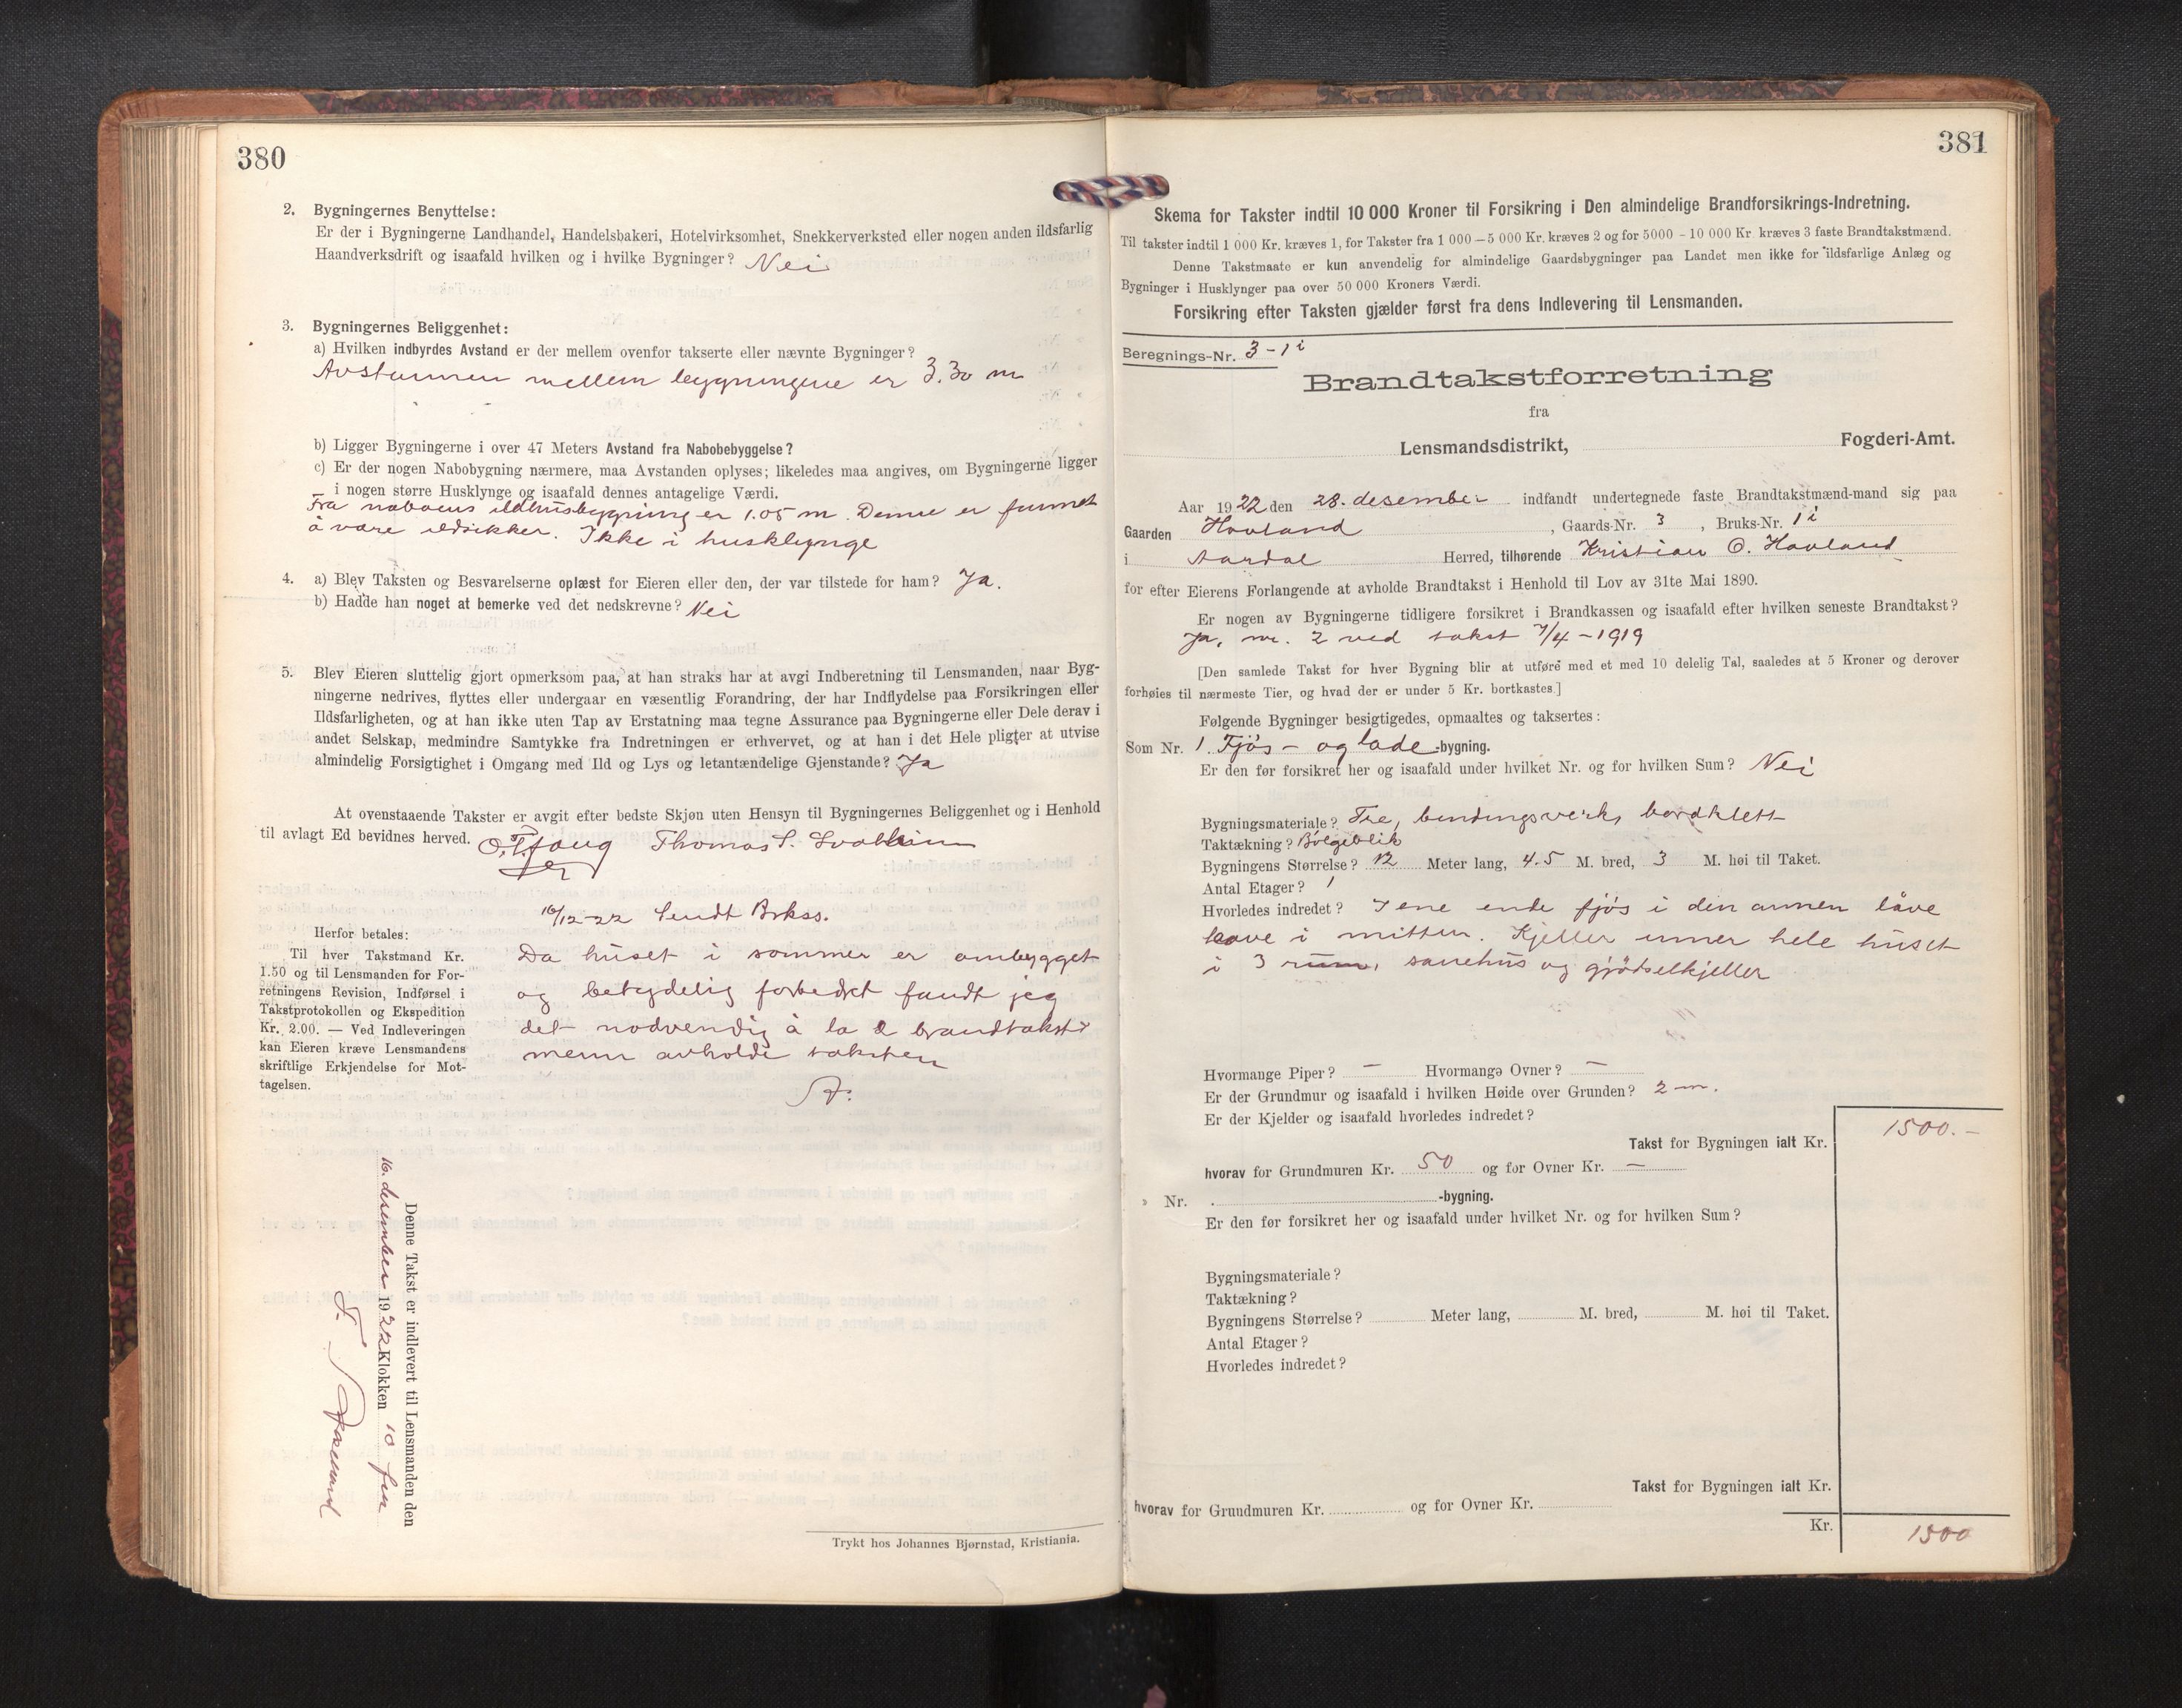 380
2. Bygningernes Benyttelse:
Er der i Bygningerne Landhandel, Handelsbakeri, Hotelvirksomhet, Snekkerverksted eller nogen anden ildsfarlig
Haandverksdrift og isaafald hvilken og i hvilke Bygninger? Nei
3. Bygningernes Beliggenhet:
a) Hvilken indbyrdes Avstand er der mellem ovenfor takserte eller nævnte Bygninger?
Avstannen mellem bygningene er 3.30 m
b) Ligger Bygningerne i over 47 Meters Avstand fra Nabobebyggelse?
c) Er der nogen Nabobygning nærmere, maa Avstanden oplyses; likeledes maa angives, om Bygningerne ligger
i nogen større Husklynge og isaafald dennes antagelige Værdi.
Fra naboens ildhusbygning er 1.05 m. Denne er funnet
å være ildsikker. Ikke i husklynge
4. a) Blev Taksten og Besvarelserne oplæst for Eieren eller den, der var tilstede for ham? Ja.
b) Hadde han noget at bemerke ved det nedskrevne? Nei
5. Blev Eieren sluttelig gjort opmerksom paa, at han straks har at avgi Indberetning til Lensmanden, naar Byg-
ningerne nedrives, flyttes eller undergaar en væsentlig Forandring, der har Indflydelse paa Forsikringen eller
Ildsfarligheten, og at han ikke uten Tap av Erstatning maa tegne Assurance paa Bygningerne eller Dele derav i
andet Selskap, medmindre Samtykke fra Indretningen er erhvervet, og at han i det Hele pligter at utvise
almindelig Forsigtighet i Omgang med Ild og Lys og letantændelige Gjenstande? Ja
At ovenstaaende Takster er avgit efter bedste Skjøn uten Hensyn til Bygningernes Beliggenhet og i Henhold
til avlagt Ed bevidnes herved. Thomas S.
16/12-22 Sendt Brkss.
Da huset i sommer er ombygget
og betydelig forbedret fandt jeg
det nødvendig å la 2 brandtakst-
menn avholde taksten
Herfor betales:
Til hver Takstmand Kr.
1.50 og til Lensmanden for For-
retningens Revision, Indførsel i
Takstprotokollen og Ekspedition
Kr. 2.00. — Ved Indleveringen
kan Eieren kræve Lensmandens
skriftlige Erkjendelse for Mot-
tagelsen.
Denne Takst er indlevert til Lensmanden den
16. desember 1922 Klokken 10 fm
Trykt hos Johannes Bjørnstad, Kristiania.
381
Skema for Takster indtil 10 000 Kroner til Forsikring i Den almindelige Brandforsikrings-Indretning.
Til takster indtil 1 000 Kr. kræves 1, for Takster fra 1 000 – 5 000 Kr. kræves 2 og for 5000 - 10 000 Kr kræves 3 faste Brandtakstmænd.
Denne Takstmaate er kun anvendelig for almindelige Gaardsbygninger paa Landet men ikke for ildsfarlige Anlæg og
Bygninger i Husklynger paa over 50 000 Kroners Værdi.
Forsikring efter Taksten gjælder først fra dens Indlevering til Lensmanden.
Beregnings-Nr. 3-1 i
Brandtakstforretning
fra
Lensmandsdistrikt, Fogderi-Amt.
Aar 1922 den 28. desember indfandt undertegnede faste Brandtakstmænd-mand sig paa
Gaarden Hovland, Gaards-Nr. 3, Bruks-Nr. 1 i
i Aardal Herred, tilhørende Kristian O. Hovland
for efter Eierens Forlangende at avholde Brandtakst i Henhold til Lov av 31te Mai 1890.
Er nogen av Bygningerne tidligere forsikret i Brandkassen og isaafald efter hvilken seneste Brandtakst?
Ja, nr. 2 ved takst 7/4-1919
[Den samlede Takst for hver Bygning blir at utføre med et med 10 delelig Tal, saaledes at 5 Kroner og derover
forhøies til nærmeste Tier, og hvad der er under 5 Kr. bortkastes.]
Følgende Bygninger besigtigedes, opmaaltes og taksertes:
Som Nr. 1. Fjøs- og lade-bygning.
Er den før forsikret her og isaafald under hvilket Nr. og for hvilken Sum? Nei
Bygningsmateriale? Tre, bindingsverk, bordklett
Taktækning? Bølgeblik
Bygningens Størrelse? 12 Meter lang, 4.5 M. bred, 3 M. høi til Taket.
Antal Etager? 1
Hvorledes indredet? I ene ende fjøs i den annen låve
i mitten. Kjeller unner hele huset
i 3 rum, sauehus og gjødselkjeller
Hvormange Piper? — Hvormange Ovner? —
Er der Grundmur og isaafald i hvilken Høide over Grunden? 2 m.
Er der Kjelder og isaafald hvorledes indredet?
Takst for Bygningen ialt Kr. 1500.-
hvorav for Grundmuren Kr. 50 og for Ovner Kr. —
» Nr. -bygning.
Er den før forsikret her og isaafald under hvilket Nr. og for hvilken Sum?
Bygningsmateriale?
Taktækning?
Bygningens Størrelse? Meter lang, M. bred, M. høi til Taket.
Antal Etager?
Hvorledes indredet?
Takst for Bygningen ialt Kr.
hvorav for Grundmuren Kr. og for Ovner Kr.
Kr. 1500